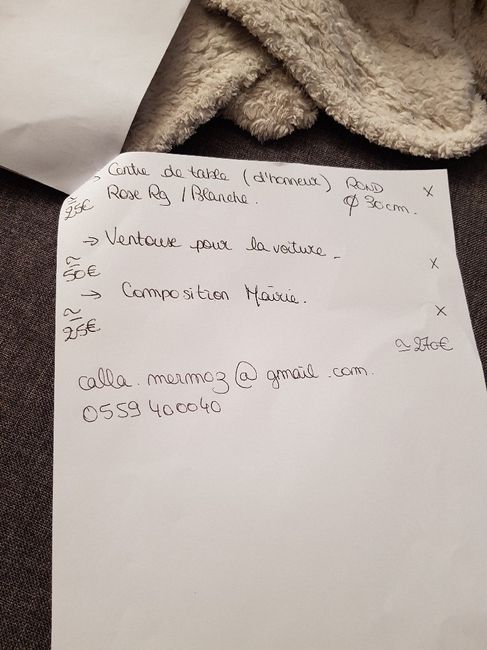 → Centre de table (d'honneur) ROND x
≃ 25€ Rose Rg / Blanche. ϕ 30cm.
→ Ventouse pour la voiture - x
≃ 50€
→ Composition Mairie. x
≃ 25€
≃ 270€
calla.mermoz@gmail.com.
0559 400040